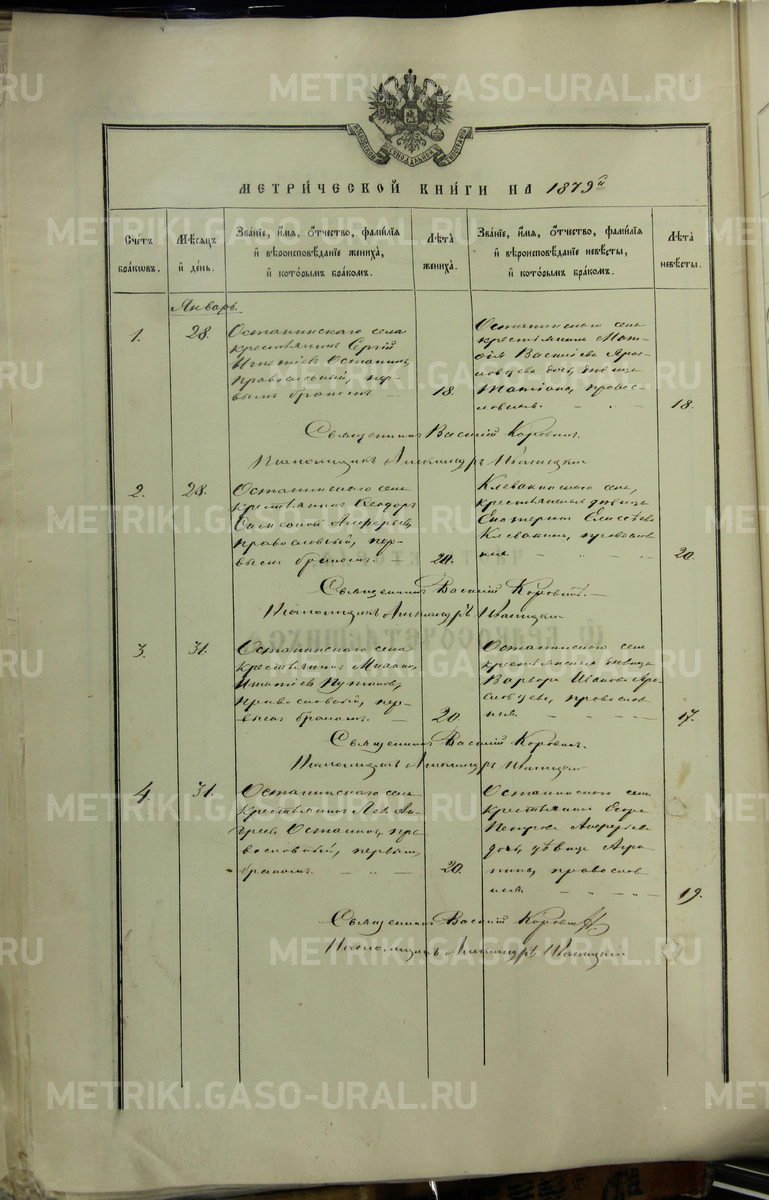 МЕТРИ́ЧЕСКОЙ КНИ́ГИ НА 1879й
Счетъ бра́ковъ.
Мѣ́сяцъ и҆ де́нь.
Зва́нїе, и҆́мя, ѻ҆́тчество, фами́лїя и҆ вѣроисповѣ́данїе жениха̀, и҆ кото́рымъ бра́комъ.
Лѣ́та жениха̀.
Зва́нїе, и҆́мя, ѻ҆́тчество, фами́лїя и҆ вѣроисповѣ́данїе невѣ́сты, и҆ кото́рымъ бра́комъ.
Лѣ́та невѣ́сты.
Январь.
1.
28.
Останинскаго села
крестьянинъ Сергій
Игнатіевъ Останинъ,
православный, пер-
вымъ бракомъ
18.
Останинскаго села
крестьянина Мат-
ѳія Василіева
дочь, дѣвица
Татіана, правос-
лавная.
18.
Священникъ Василій Коровинъ.
Псаломщикъ Александръ
2.
28.
Останинскаго села
крестьянинъ Ѳеодоръ
православный, пер-
вымъ бракомъ.
20.
Клевакинскаго села,
крестьянская дѣвица
Екатерина Елисѣева
Клевакина, православ
ная.
20.
Священникъ Василій Коровинъ.
Псаломщикъ Александръ
3.
31.
Останинскаго села
крестьянинъ Михаилъ
Игнатіевъ
православный, пер-
вымъ бракомъ.
20.
Останинскаго села
крестьянская дѣвица
Варвара Иванова
православ
ная.
17.
Священникъ Василій Коровинъ.
Псаломщикъ Александръ
4.
31.
Останинскаго села
крестьянинъ Левъ Ан-
дреевъ Останинъ, пра-
вославный, первымъ
бракомъ.
20.
Останинскаго села
крестьянина Егора
Петрова
дочь, дѣвица Агри-
пина, православ
ная.
19.
Священникъ Василій Коровинъ
Псаломщикъ Александръ
METRIKI.GASO-URAL.RU